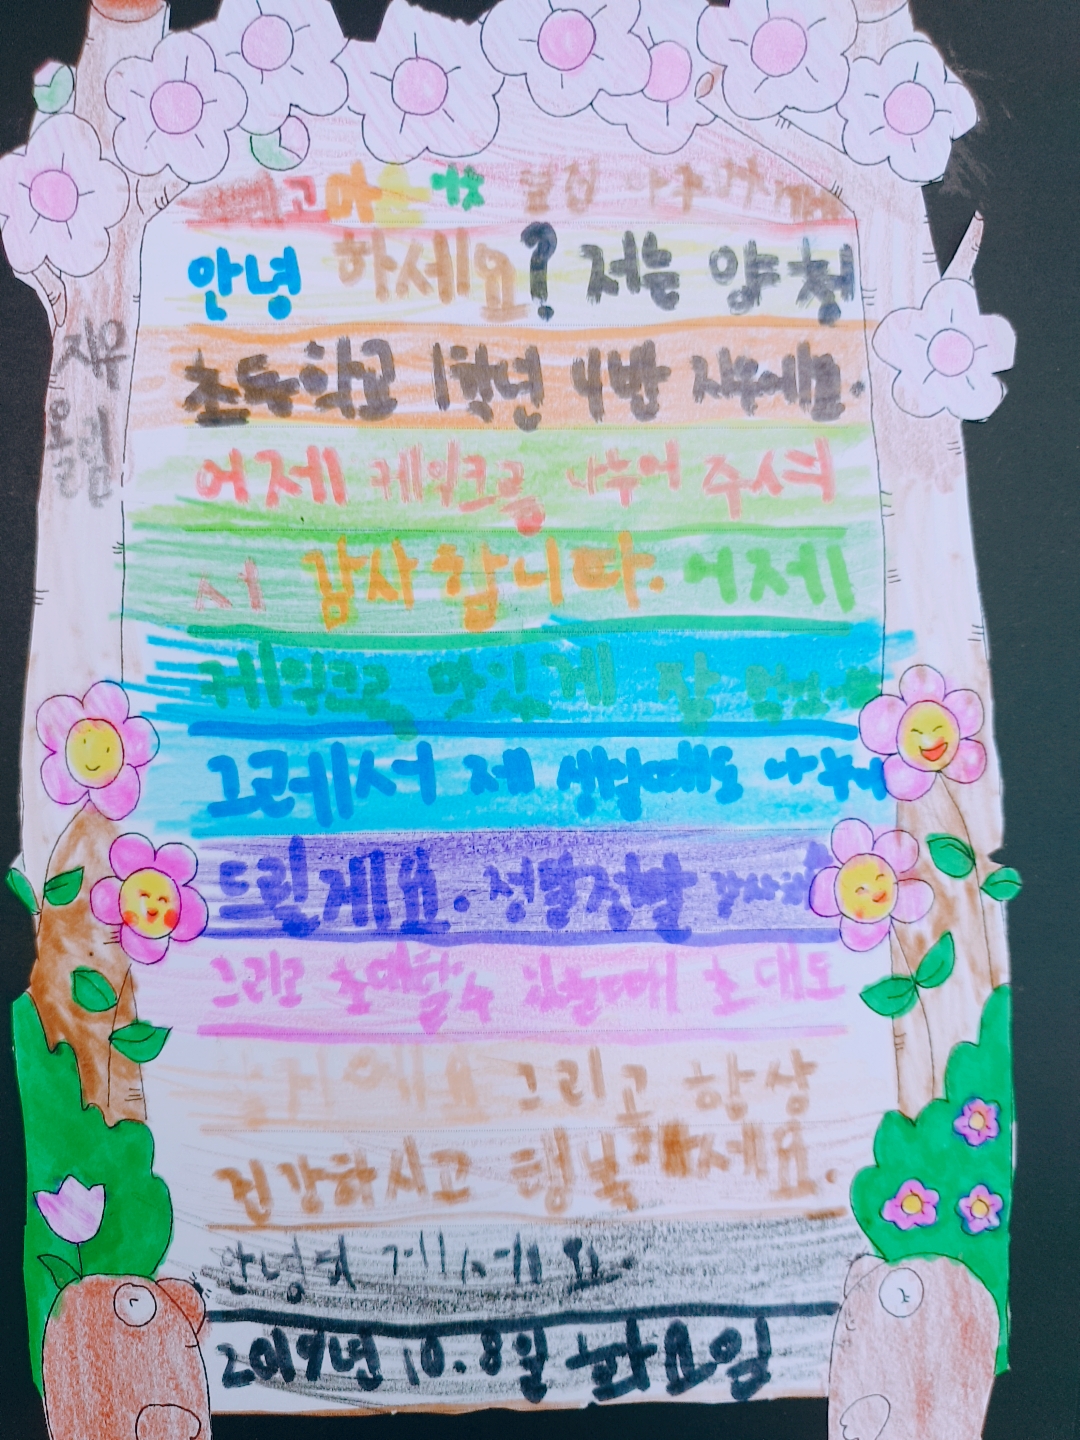 안녕 하세요? 저는 양청
초등학교 1학년 4반 지우에요.
어제 케익크를 나누어 주셔
서 감사합니다. 어제
케익크로 맛있게 잘
그레서 제 생일때도 나누어
드릴게요. 정말정말
그리고 초대할수 있을때에 초대도
그리고 항상
건강하시고 행복하세요.
안녕히 계세요.
2019년 10.8일 화요일
지우
올림